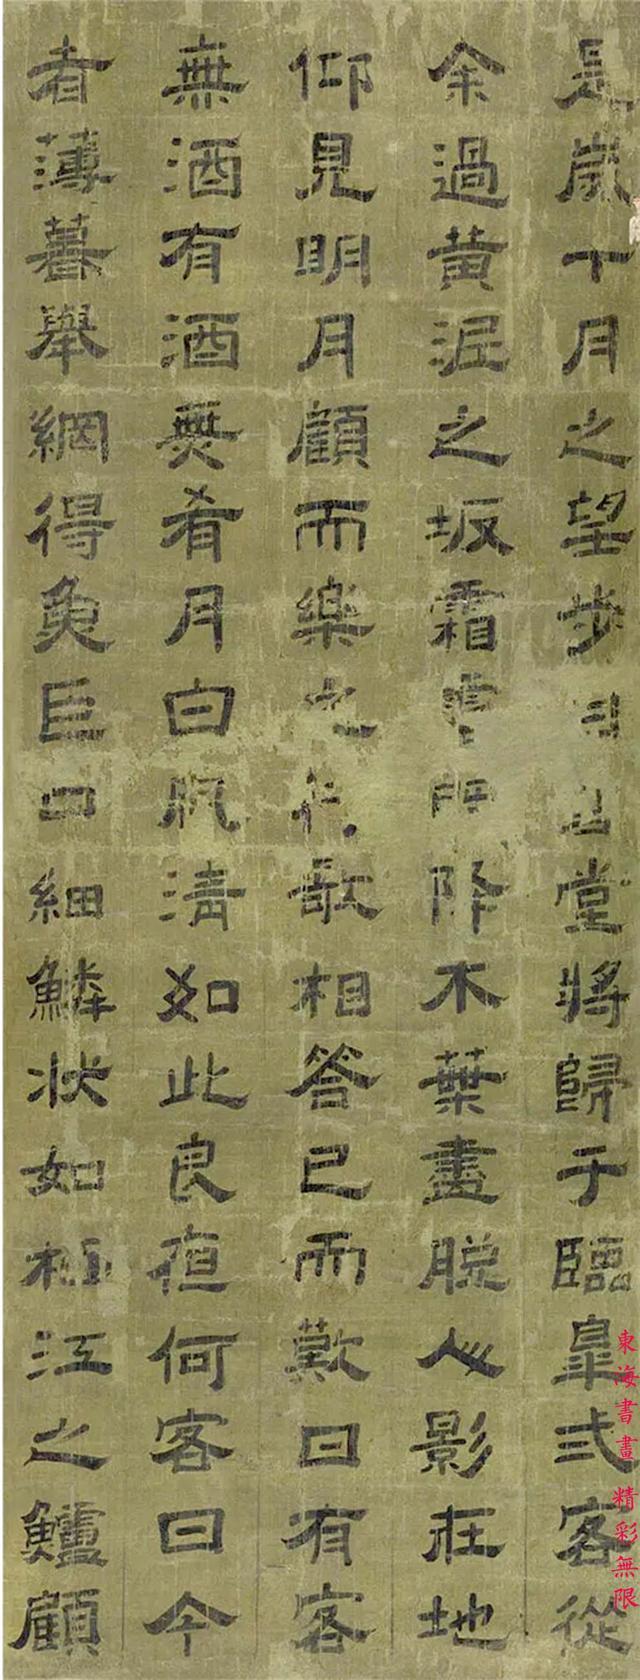 是歲十月之望步自雪堂將歸于臨皐弍客從
余過黃泥之坂霜露既降木葉盡脫人影在地
仰見明月顧而樂之行歌相答已而歎曰有客
無酒有酒無肴月白風清如此良夜何客曰今
者薄暮舉網得魚巨口細鱗狀如松江之鱸顧
東海書畫 精彩無限